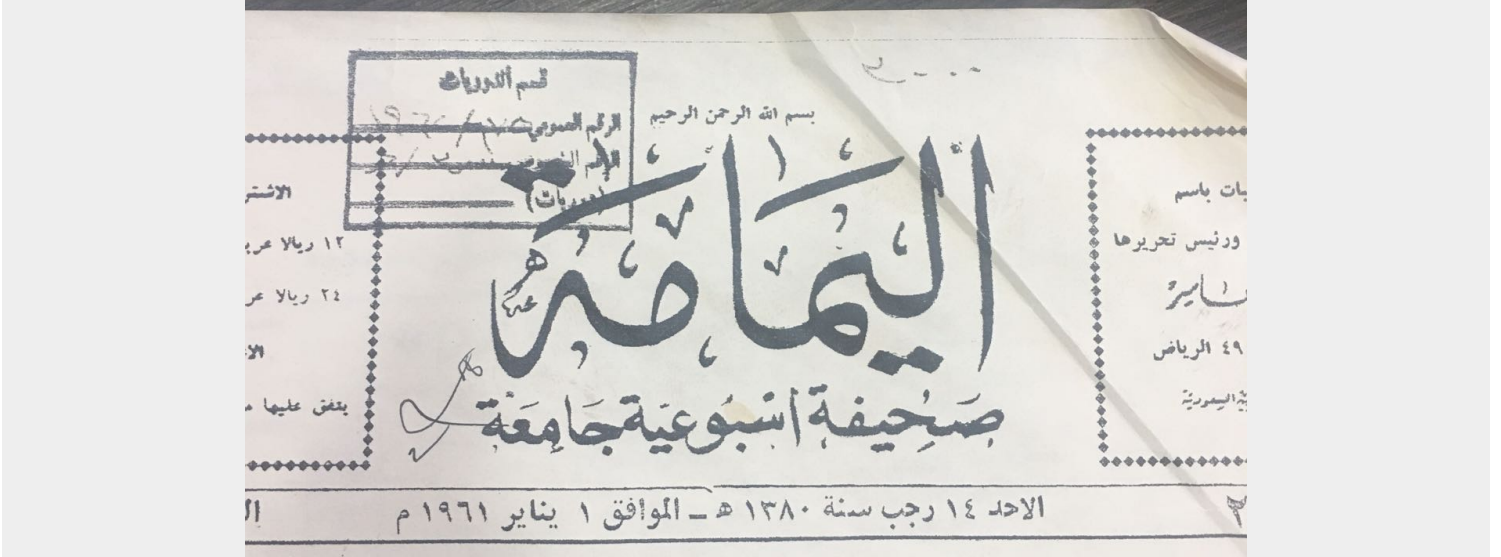 قسم الدوريات
الرقم العمومي
الرقم
(دوريات)
بسم الله الرحمن الرحيم
اليمامة
صحيفة اسبوعية جامعة
باسم
ورئيس تحريرها
٤٩ الرياض
السعودية
١٢ ريالا
٢٤ ريالا
يتفق عليها
الاحد ١٤ رجب سنة ١٣٨٠ هـ ـ الموافق ١ يناير ١٩٦١ م